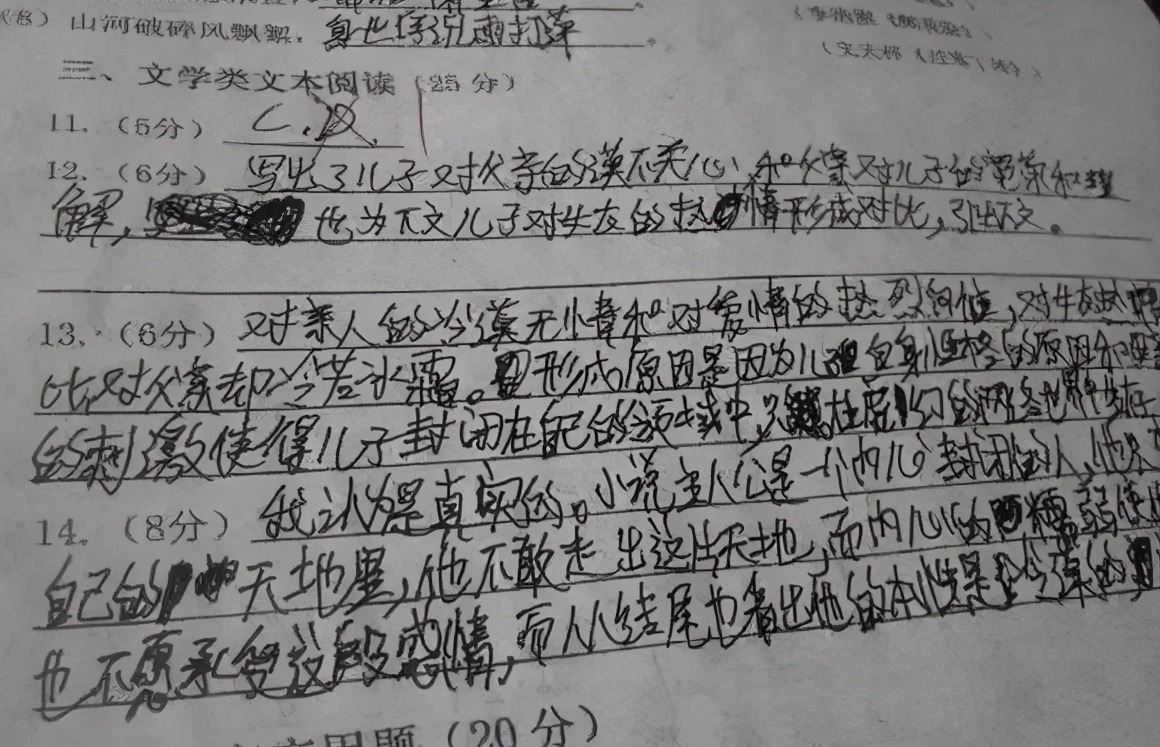 山河破碎风飘絮，身世浮沉雨打萍。
三、文学类文本阅读（25分）
11.（5分） C.D.
12.（6分） 写出了儿子对父亲的冷漠不关心，和父亲对儿子的宽荣和理
解，也为下文儿子对失友的热情形成对比，引出下文。
13.（6分） 对亲人的冷漠无情和对爱情的热烈向往，对失友热
比，对父亲却冷若冰霜。形成原因是因为儿子自身性格的原因和
的刺激使得儿子封闭在自己的领域中，在虚幻的网络世界中
14.（8分） 我认为是真实的。小说主人公是一个内心封闭的人，他只
自己的天地里，他不敢走出这片天地，而内心的懦弱使他
也不愿承受这段感情，而从结尾也看出他的本性是冷漠的
（20分）